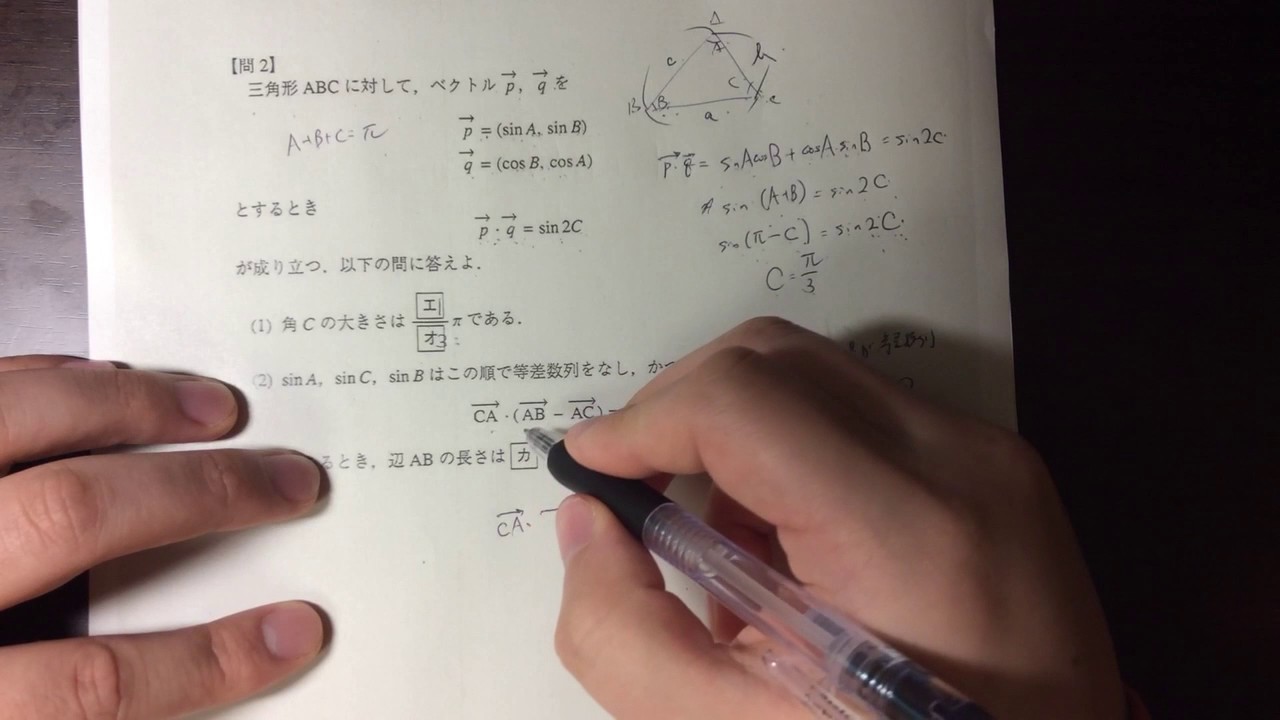 【問2】
三角形 ABC に対して，ベクトル p→, q→ を
A+B+C=π
p→ = (sin A, sin B)
q→ = (cos B, cos A)
とするとき
p→・q→ = sin 2C
が成り立つ．以下の問に答えよ．
(1) 角 C の大きさは エ/オ π である．
1
3
(2) sin A, sin C, sin B はこの順で等差数列をなし，かつ
CA→・(AB→ − AC→)
るとき，辺 AB の長さは カ
CA→・
A
A
c
b
C
B
B
a
p→・q→ = sinAcosB + cosA・sinB = sin2C
sin(A+B) = sin2C
sin(π−C) = sin2C
C = π/3